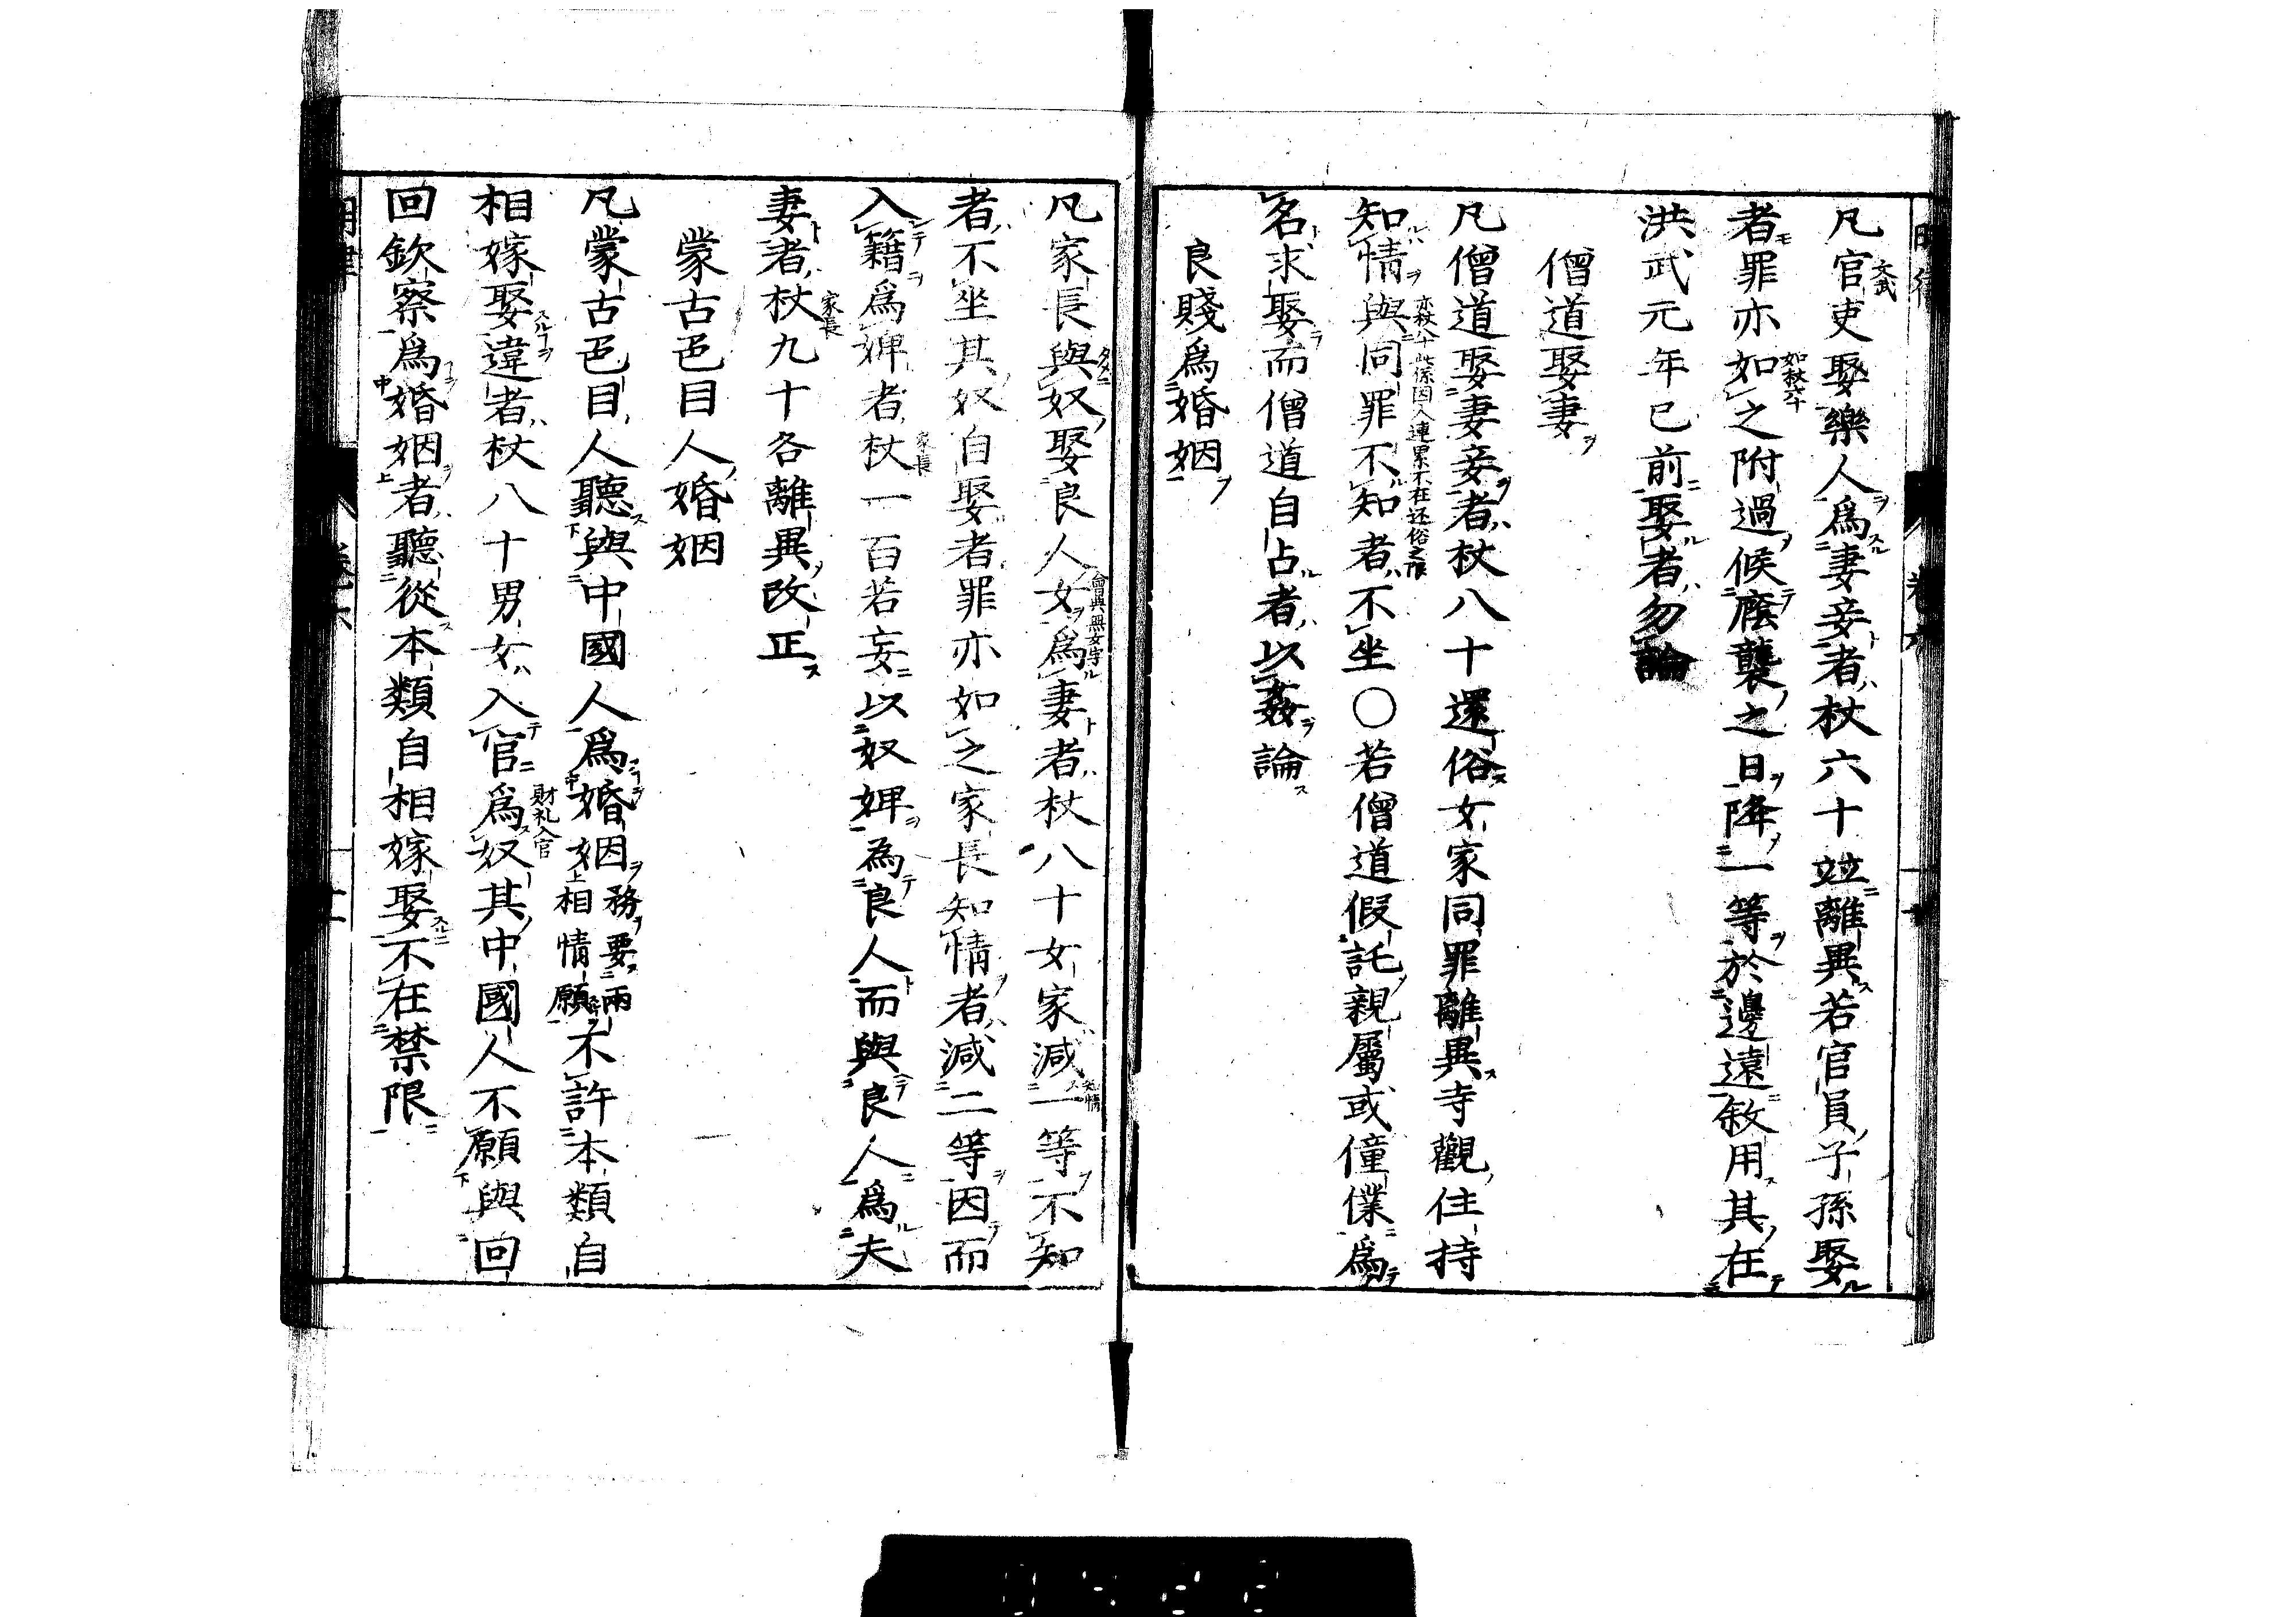 凡官吏娶樂人爲妻妾者杖六十竝離異若官員子孫娶
文武
者罪亦如之附過候廕襲之日降一等於邊遠敘用其在
如杖六十
洪武元年已前娶者勿論
僧道娶妻
凡僧道娶妻妾者杖八十還俗女家同罪離異寺觀住持
知情與同罪不知者不坐〇若僧道假託親屬或僮僕爲
亦杖八十此係因人連累不在还俗之限
名求娶而僧道自占者以姦論
良賤爲婚姻
凡家長與奴娶良人女爲妻者杖八十女家減一等不知
會典無女字
知情
者不坐其奴自娶者罪亦如之家長知情者減二等因而
入籍爲婢者杖一百若妄以奴婢為良人而與良人爲夫
家長
妻者杖九十各離異改正
家長
蒙古色目人婚姻
凡蒙古色目人聽與中國人爲婚姻務要兩相情願不許本類自
相嫁娶違者杖八十男女入官爲奴其中國人不願與回
財礼入官
回欽察爲婚姻者聽從本類自相嫁娶不在禁限